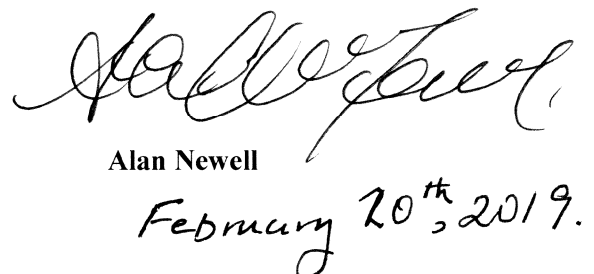 Alan Newell
February 20th, 2019.